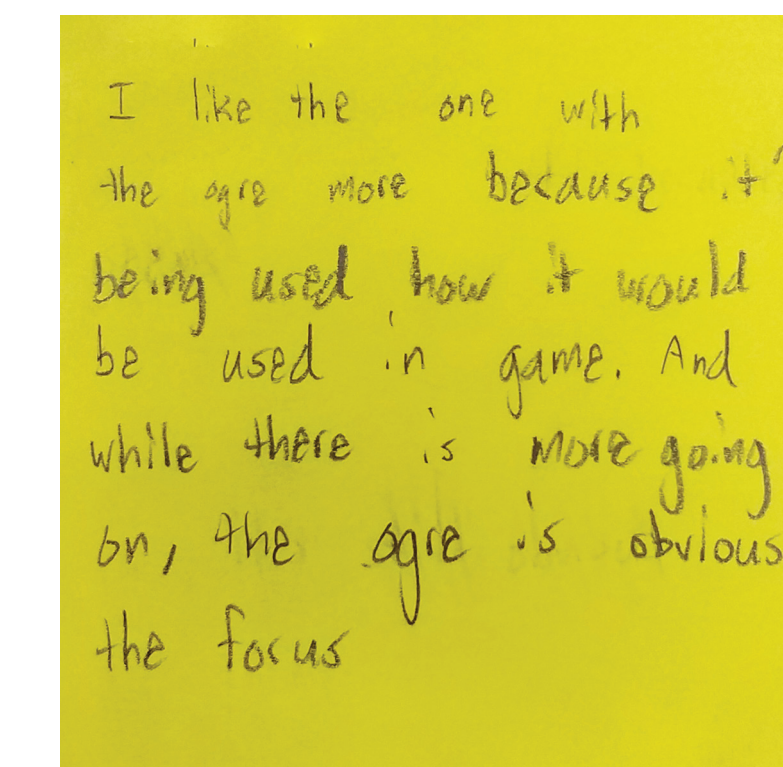 I like the one with
the ogre more because it'
being used how it would
be used in game. And
while there is more going
on, the ogre is obvious
the focus